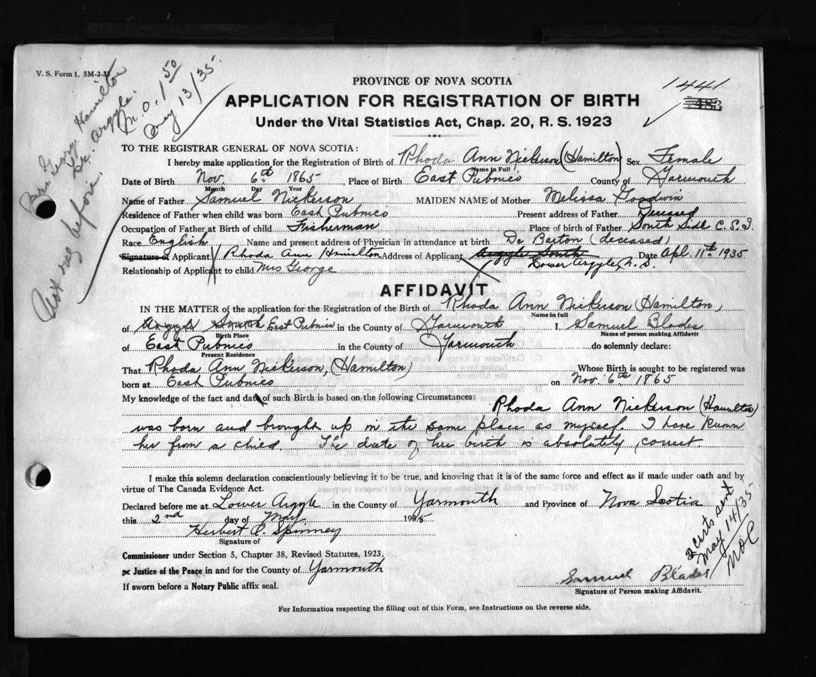 V. S. Form 1. 5M-2-35
Mrs. George Hamilton
Lr. Argyle.
M.O. 1.50
May 13/35.
Not reg before.
1441
PROVINCE OF NOVA SCOTIA
APPLICATION FOR REGISTRATION OF BIRTH
Under the Vital Statistics Act, Chap. 20, R. S. 1923
TO THE REGISTRAR GENERAL OF NOVA SCOTIA:
I hereby make application for the Registration of Birth of Rhoda Ann Nickerson (Hamilton) Sex Female
Name in Full
Date of Birth Nov. 6th 1865, Place of Birth East Pubnico County of Yarmouth
Month Day Year
Name of Father Samuel Nickerson MAIDEN NAME of Mother Melissa Goodwin
Residence of Father when child was born East Pubnico Present address of Father Deceased
Occupation of Father at Birth of child Fisherman Place of birth of Father South Side C. S. I.
Race English Name and present address of Physician in attendance at birth Dr Barton (deceased)
Signature of Applicant Rhoda Ann Hamilton Address of Applicant Argyle South Date Apl. 11th 1935
Lower Argyle, N. S.
Relationship of Applicant to child Mrs George
AFFIDAVIT
IN THE MATTER of the application for the Registration of the Birth of Rhoda Ann Nickerson (Hamilton)
Name in full
of Argyle South East Pubnico in the County of Yarmouth I, Samuel Blades
Birth Place Name of person making Affidavit
of East Pubnico in the County of Yarmouth do solemnly declare:
Present Residence
That Rhoda Ann Nickerson, (Hamilton) Whose Birth is sought to be registered was
born at East Pubnico on Nov. 6th 1865
My knowledge of the fact and date of such Birth is based on the following Circumstances:
Rhoda Ann Nickerson (Hamilton)
was born and brought up in the same place as myself. I have known
her from a child. The date of her birth is absolutely correct
I make this solemn declaration conscientiously believing it to be true, and knowing that it is of the same force and effect as if made under oath and by
virtue of The Canada Evidence Act.
Declared before me at Lower Argyle in the County of Yarmouth and Province of Nova Scotia
this 2nd day of May 1935
Herbert C. Spinney
Signature of
Commissioner under Section 5, Chapter 38, Revised Statutes, 1923.
or Justice of the Peace in and for the County of Yarmouth
If sworn before a Notary Public affix seal.
2 certs sent
May 14/35
MOC
Samuel Blades
Signature of Person making Affidavit.
For Information respecting the filling out of this Form, see Instructions on the reverse side.